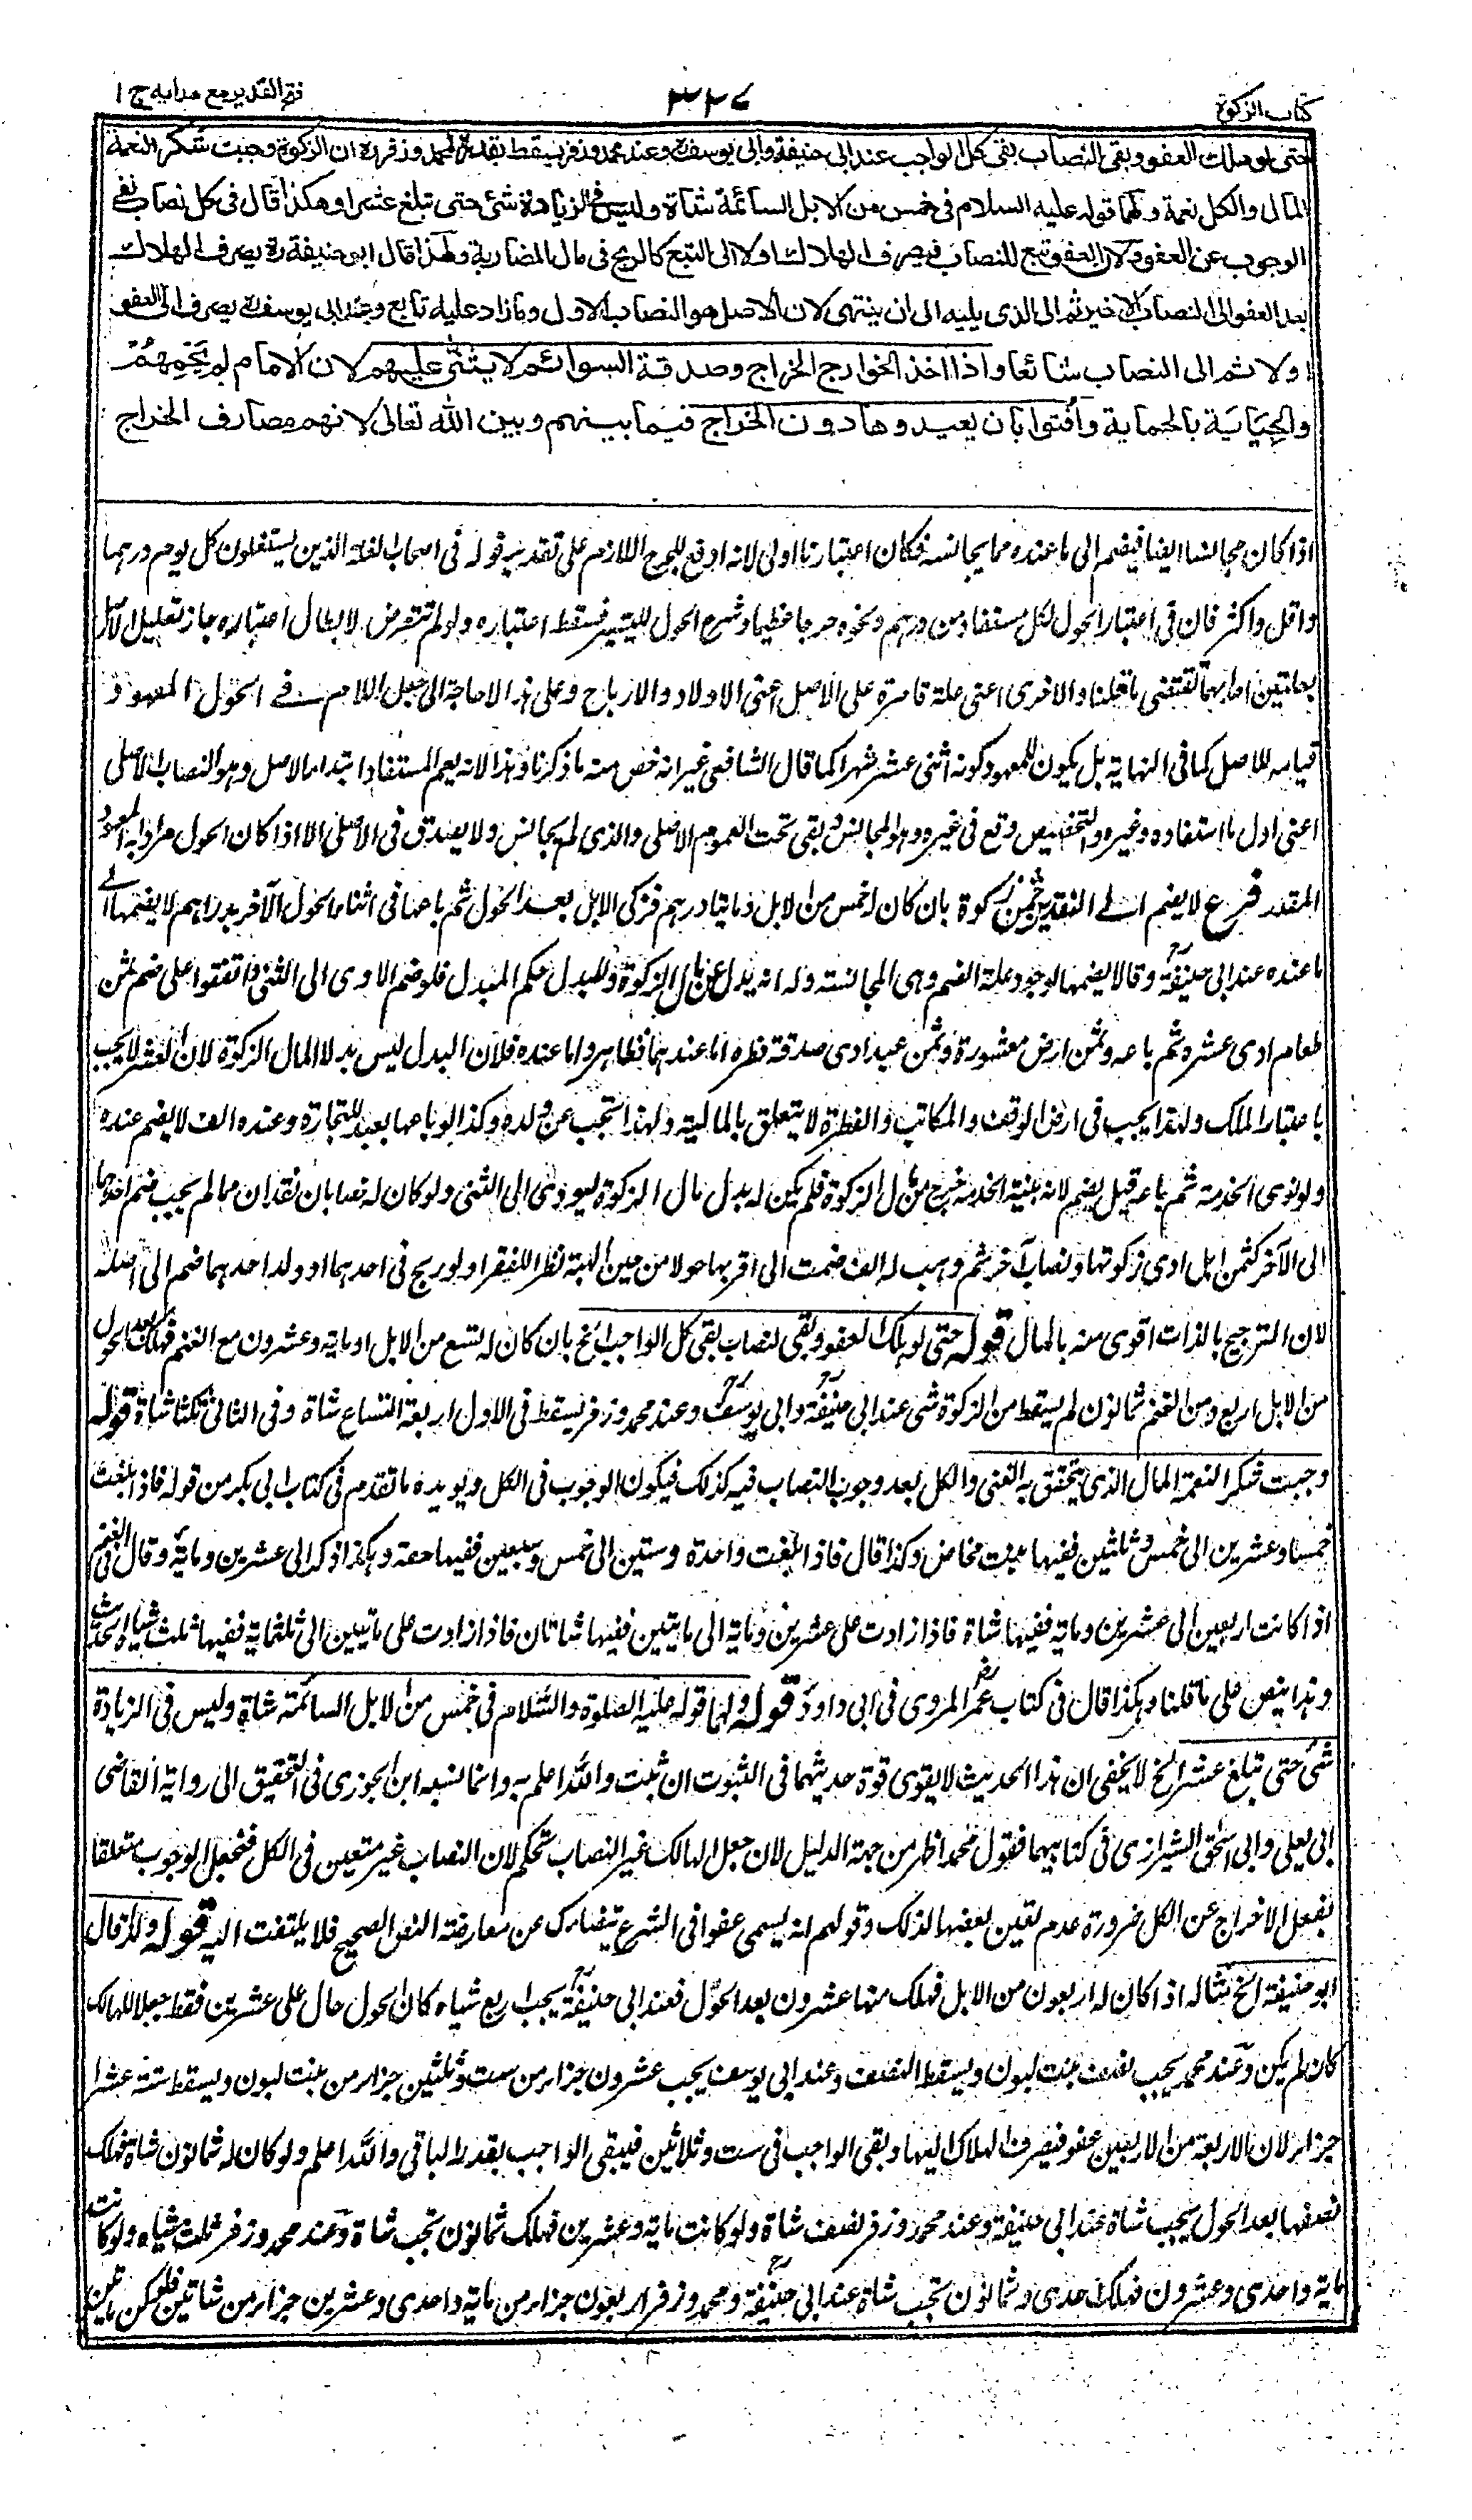 كتاب الزكوة
٣٢٧
فتح القدير مع هدايه ج ١
حتى لو هلك العفو وبقى النصاب بقى كل الواجب عند ابى حنيفة وابى يوسف وعند محمد وزفر يسقط بقدره لمحمد وزفر ان الزكوة وجبت شكر النعمة
المال والكل نعمة ولهما قوله عليه السلام فى خمس من الابل السائمة شاة وليس فى الزيادة شئ حتى تبلغ عشرا وهكذا قال فى كل نصاب نفى
الوجوب عن العفو ولان العفو تبع للنصاب فيصرف الهلاك اولا الى التبع كالربح فى مال المضاربة ولهذا قال ابو حنيفة رح يصرف الهلاك
بعد العفو الى النصاب الاخير ثم الى الذى يليه الى ان ينتهى لان الاصل هو النصاب الاول وما زاد عليه تابع وعند ابى يوسف يصرف الى العفو
اولا ثم الى النصاب شائعا واذا اخذ الخوارج الخراج وصدقة السوائم لا يثنى عليهم لان الامام لم يحمهم
والجباية بالحماية وافتوا بان يعيدوها دون الخراج فيما بينهم وبين الله تعالى لانهم مصارف الخراج
اذا كان مجالسا ايضا فيضم الى ما عنده مما يجانسه فكان اعتبارنا اولى لانه ادفع للحرج اللازم على تقدير قوله فى اصحاب الغلة الذين يستغلون كل يوم درهما
واقل واكثر فان فى اعتبار الحول لكل مستفاد من درهم ونحوه حرجا عظيما وشرع الحول للتيسير فسقط اعتباره ولو لم تتعرض لابطال اعتباره جاز تعليل الاصل
بعلتين احدٰهما تقتضى ما قلنا والاخرى اعنى علة قاصرة على الاصل اعنى الاولاد والارباح وعلى هذا لا حاجة الى جعل اللام فى الحول المعهود
قيامه للاصل كما فى النهاية بل يكون للمعهود كونه اثنى عشر شهرا كما قال الشافعى غير انه خص منه ما ذكرنا وهذا لانه يعم المستفاد ابتداء الاصل وهو النصاب الاصلى
اعنى اول ما استفاده وغيره والتخصيص وقع فى غيره وهو المجانس وبقى تحت العموم الاصلى والذى لم يجانس ولا يصدق فى الاصلى الا اذا كان الحول مرادا به المعهود
المقدر فرع لا يضم الى النقدين ثمن زكوة بان كان له خمس من الابل ومائتا درهم فزكى الابل بعد الحول ثم باعها فى اثناء الحول الآخر بدراهم لا يضمها الى
ما عنده عند ابى حنيفة وقالا يضمها لوجود علة الضم وهى المجانسة وله انه بدل عن مال الزكوة وللبدل حكم المبدل فلو ضم لادى الى الثنى واتفقوا على ضم ثمن
طعام ادى عشره ثم باعه وثمن ارض معشورة وثمن عبد ادى صدقة فطره اما عندهما فظاهر واما عنده فلان البدل ليس بدلا لمال الزكوة لان العشر لا يجب
باعتبار الملك ولهذا يجب فى ارض الوقف والمكاتب والفطرة لا يتعلق بالمالية ولهذا تجب عن ولده وكذا لو باعها بعبد للتجارة وعنده الف لا يضم عنده
ولو نوى الخدمة ثم باعه قيل يضم لانه بنية الخدمة خرج من مال الزكوة فلم يكن له بدل مال الزكوة ليودى الى الثنى ولو كان له نصابان نقدان مما لم يجب ضم احدهما
الى الآخر كثمن ابل ادى زكوتها ونصاب آخر ثم وهب له الف ضمت الى اقربهما حولا من حين الهبة نظرا للفقراء ولو ربح فى احدهما او ولد احدهما ضم الى اصله
لان الترجيح بالذات اقوى منه بالحال قوله حتى لو هلك العفو وبقى النصاب بقى كل الواجب الخ بان كان له تسع من الابل او مائة وعشرون مع الغنم فهلك بعد الحول
من الابل اربع ومن الغنم ثمانون لم يسقط من الزكوة شئ عند ابى حنيفة وابى يوسف وعند محمد وزفر يسقط فى الاول اربعة اتساع شاة وفى الثانى ثلثا شاة قوله
وجبت شكر النعمة المال الذى يتحقق به الغنى والكل بعد وجوب النصاب فيه كذلك فيكون الوجوب فى الكل ويويده ما تقدم فى كتاب ابى بكر من قوله فاذا بلغت
خمسا وعشرين الى خمس وثلثين ففيها بنت مخاض وكذا قال فاذا بلغت واحدة وستين الى خمس وسبعين ففيها جذعة وهكذا ذكر الى عشرين ومائة وقال فى الغنم
اذا كانت اربعين الى عشرين ومائة ففيها شاة فاذا زادت على عشرين ومائة الى مائتين ففيها شاتان فاذا زادت على مائتين الى ثلثمائة ففيها ثلث شياه الحديث
وهذا ينص على ما قلنا وهكذا قال فى كتاب عمر المروى فى ابى داود قوله ولهما قوله عليه الصلوة والسلام فى خمس من الابل السائمة شاة وليس فى الزيادة
شئ حتى تبلغ عشرا الخ لا يخفى ان هذا الحديث لا يقوى قوة حديثهما فى الثبوت ان ثبت والله اعلم به وانما نسبه ابن الجوزى فى التحقيق الى رواية القاضى
ابى يعلى وابى اسحٰق الشيرازى فى كتابيهما فقول محمد اظهر من جهة الدليل لان جعل الهالك غير النصاب تحكم لان النصاب غير متعين فى الكل فجعل الوجوب متعلقا
بفعل الاخراج عن الكل ضرورة عدم تعين بعضها لذلك وقولهم انه يسمى عفوا فى الشرع يتضاءل عن معارضة النص الصحيح فلا يلتفت اليه قوله ولذا قال
ابو حنيفة الخ مثاله اذا كان له اربعون من الابل فهلك منها عشرون بعد الحول فعند ابى حنيفة يجب اربع شياه كان الحول حال على عشرين فقط جعلا للهالك
كان لم يكن وعند محمد يجب نصف بنت لبون ويسقط النصف وعند ابى يوسف يجب عشرون جزاء من ست وثلثين جزاء من بنت لبون ويسقط ستة عشر
جزاء لان الاربعة من الاربعين عفو فيصرف الهلاك اليها وبقى الواجب فى ست وثلاثين فيبقى الواجب بقدر الباقى والله اعلم ولو كان له ثمانون شاة فهلك
نصفها بعد الحول يجب شاة عند ابى حنيفة وعند محمد وزفر نصف شاة ولو كانت مائة وعشرين فهلك ثمانون تجب شاة وعند محمد وزفر ثلث شياه ولو كانت
مائة واحدى وعشرون فهلك احدى وثمانون تجب شاة عند ابى حنيفة ومحمد وزفر اربعون جزاء من مائة واحدى وعشرين جزاء من شاتين فلو لم يكن